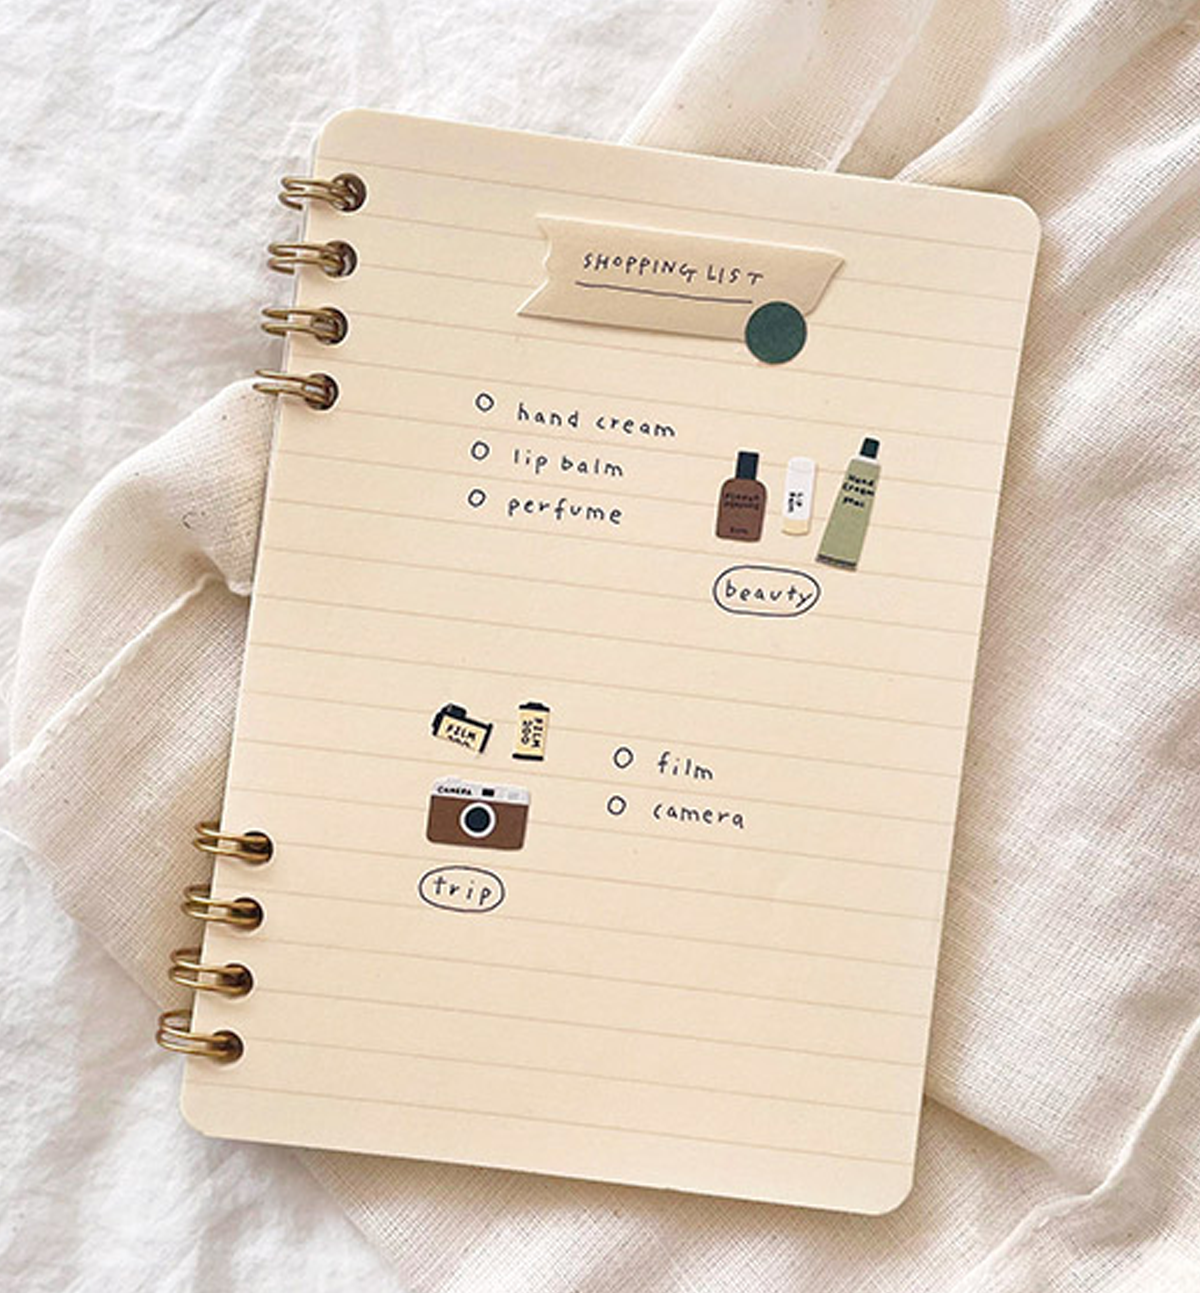 SHOPPING LIST
hand cream
lip balm
perfume
Lip
Balm
Hand
Cream
beauty
FILM
FILM
200
film
CAMERA
camera
trip